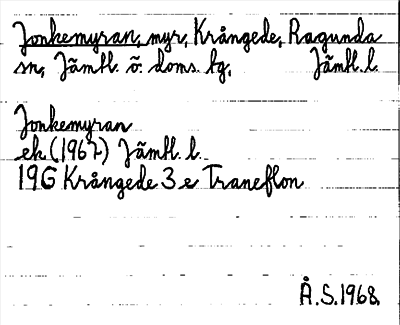 Jonkemyran, myr, Krångede, Ragunda
sn, Jämtl. ö. doms. tg, Jämtl. l.
Jonkemyran
ek (1967) Jämtl. l.
19G Krångede 3 e Traneflon
Å.S.1968.